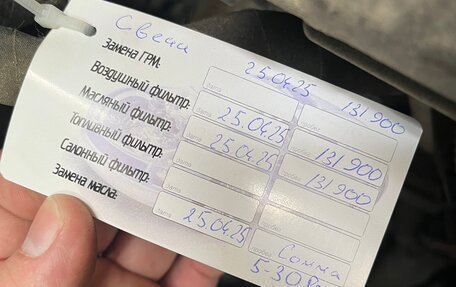 Свечи 25.04.25 131900
Замена ГРМ:
Дата Пробег
Воздушный фильтр: 25.04.25 131900
Дата Пробег
Масляный фильтр: 25.04.25 131900
Дата Пробег
Топливный фильтр:
Дата Пробег
Салонный фильтр: 25.04.25
Дата Пробег
Замена масла: Сомма
5-30